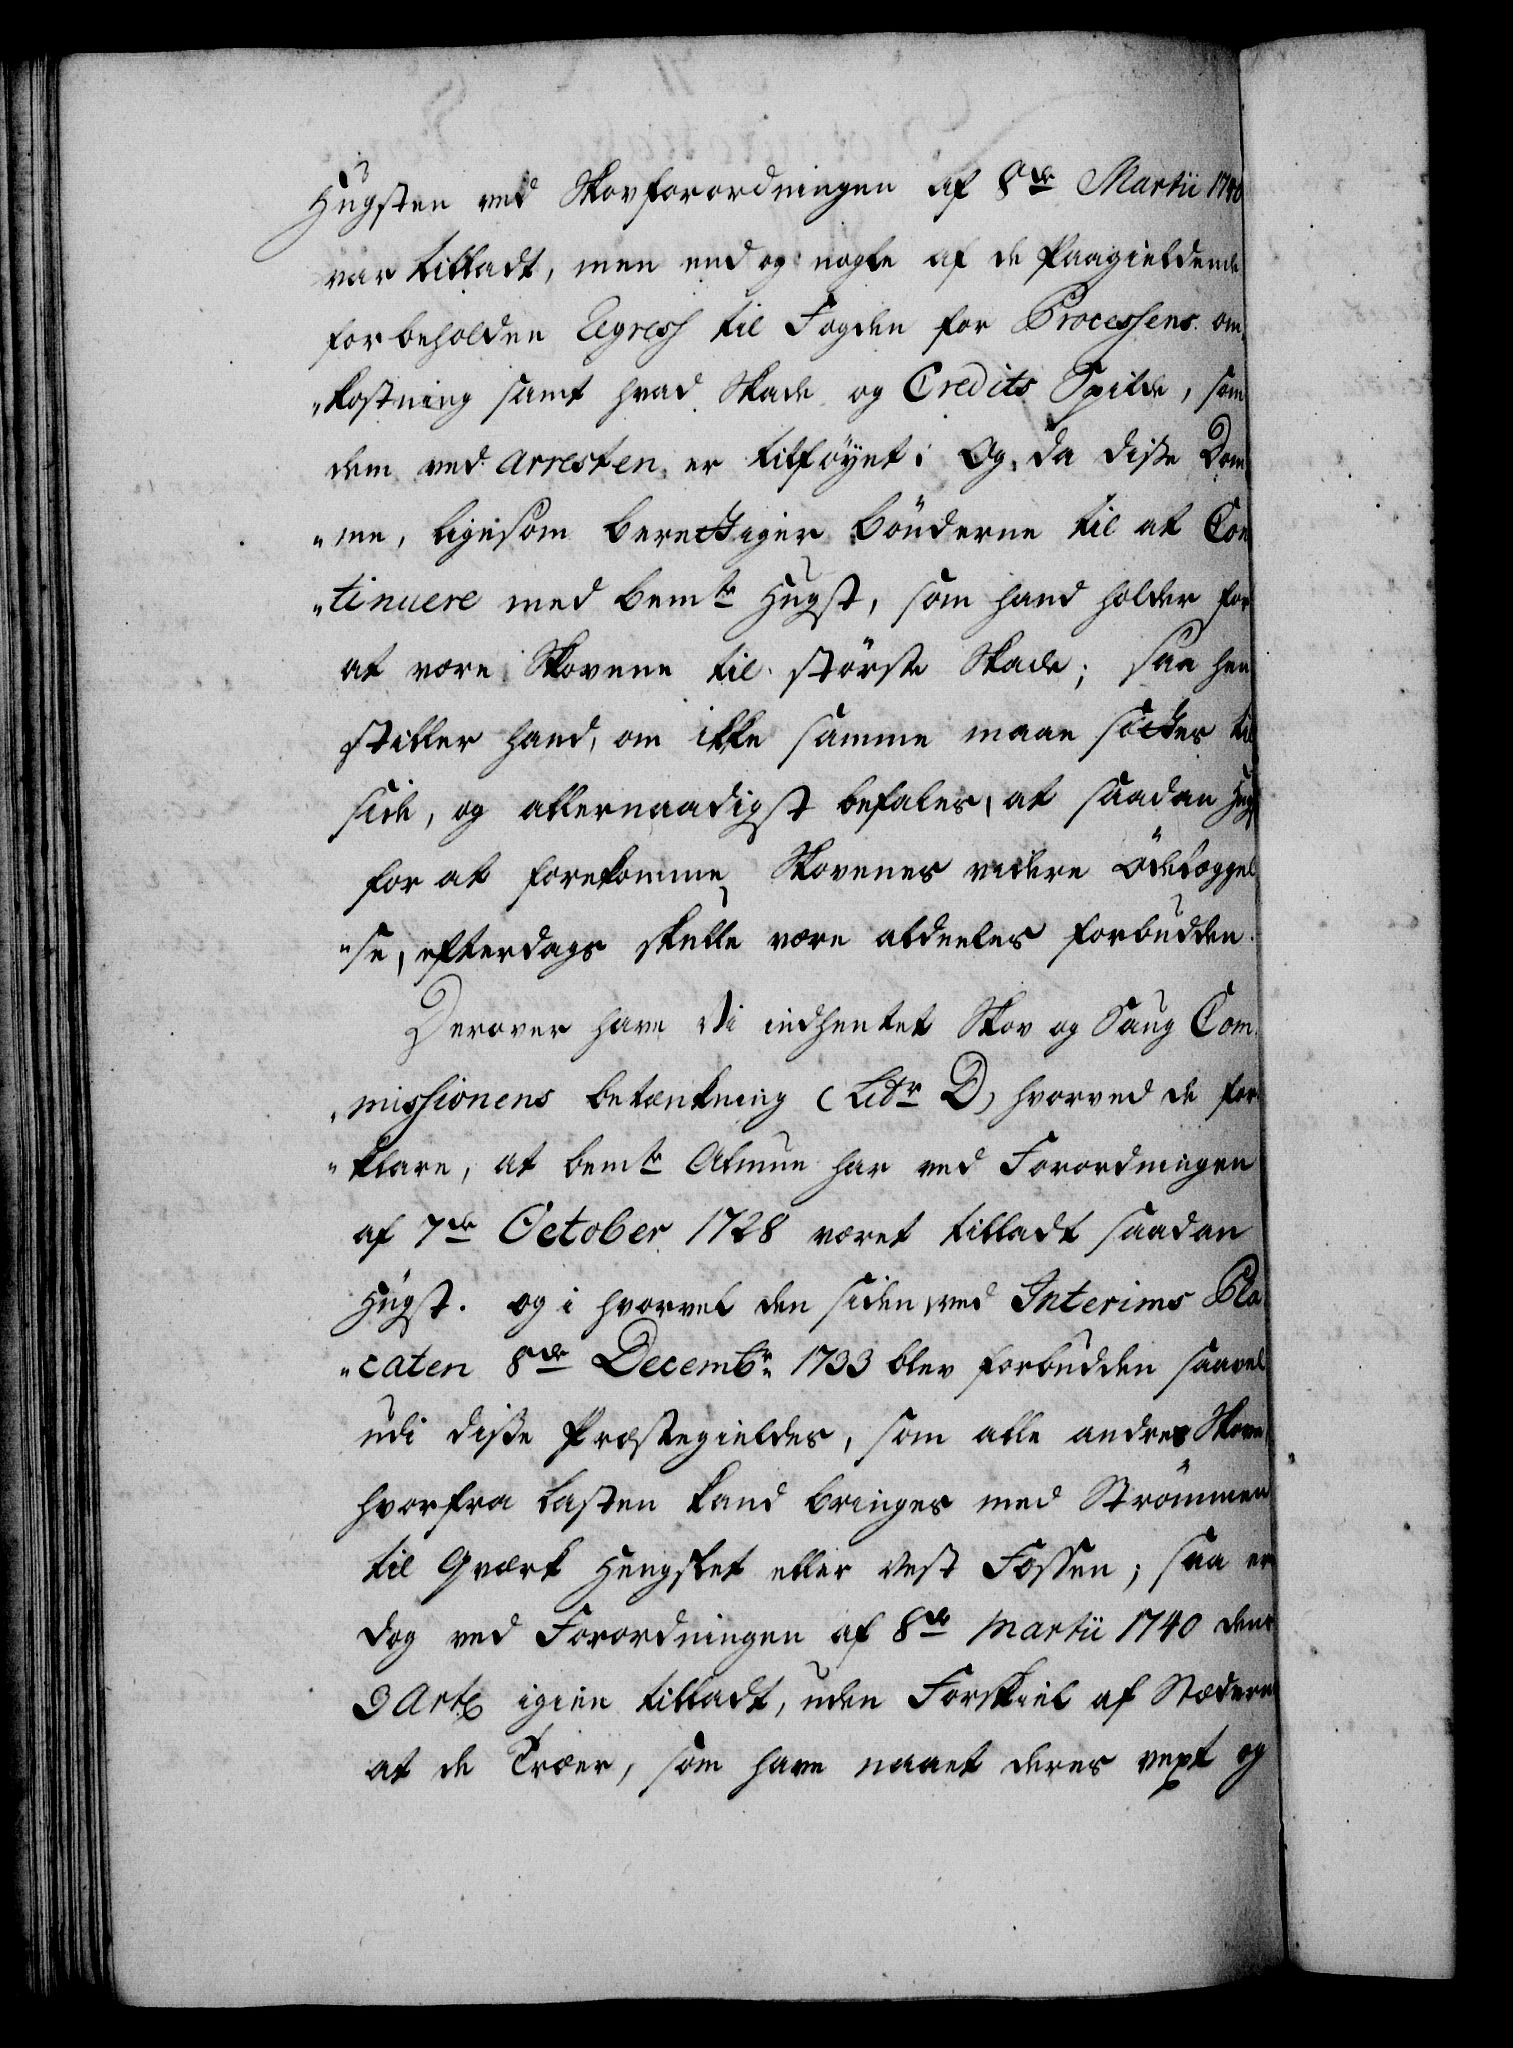 Hugsten ved Skovforordningen af 8de Martii 1740
var tilladt, men end og nogle af de Paagieldende
forbeholden Regress til Fogden for Processens om-
„kostning samt hvad Skade og Credits Spilde, som
dem ved Arresten er tilföyet; Og da disse Dom-
„me, ligesom berettiger bönderne til at Con-
„tinuere med bemte Hugst, som hand holder for
at være Skovene til störste Skade; saa hen
stiller hand, om ikke samme maae sættes til
side, og allernaadigst befales, at saadan Hugst
for at forekomme Skovenes videre ödelæggel-
„se, efterdags skulle være aldeeles forbudden.
Derover have Vi indhentet Skov og Saug Com-
„missionens betænkning (Litr D) hvorved de for-
„klare, at bemte Almue har ved Forordningen
af 7de October 1728 været tilladt saadan
Hugst. og i hvorvel den siden ved Interims Pla-
„caten 8de Decembr 1733 blev forbudden saavel
udi disse Præstegieldes, som alle andres Skove
hvorfra lasten kand bringes med Strömmen
til Qværk Hengslet eller Vest Fossen; saa er
dog ved Forordningen af 8de Martii 1740 dens
3 Art: igien tilladt, uden Forskiel af Stæderne
at de Træer, som have naaet deres vext og